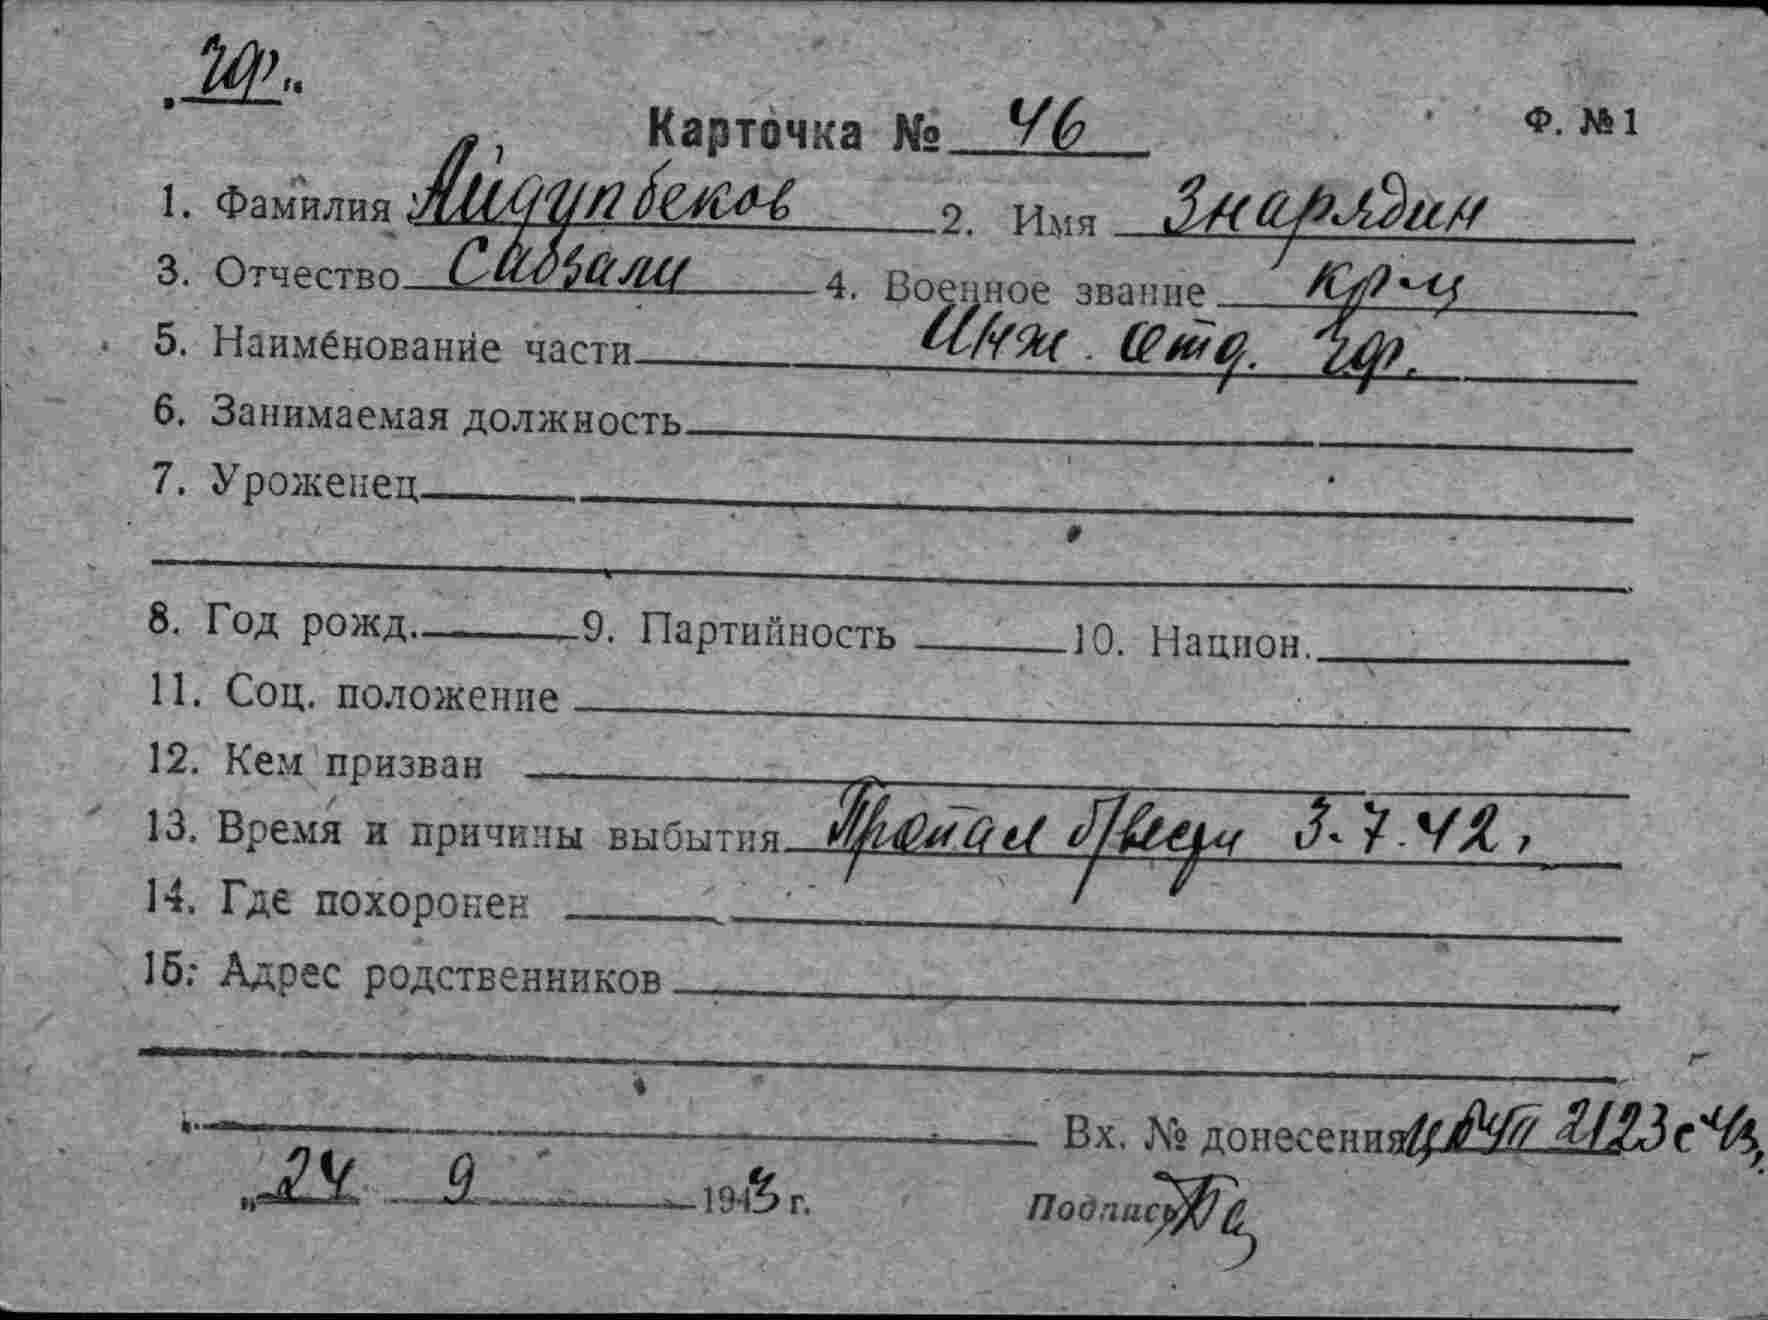 "чф."
Карточка № 46 Ф. №1
1. Фамилия Айдупбеков 2. Имя Знарядин
3. Отчество Сабзали 4. Военное звание кр-ц
5. Наименование части Инж. отд. чф.
6. Занимаемая должность
7. Уроженец
8. Год рожд. 9. Партийность 10. Национ.
11. Соц. положение
12. Кем призван
13. Время и причины выбытия Пропал б/вести 3.7.42г
14. Где похоронен
15. Адрес родственников
Вх. № донесения 2123 с 43
„24 9 1943 г. Подпись